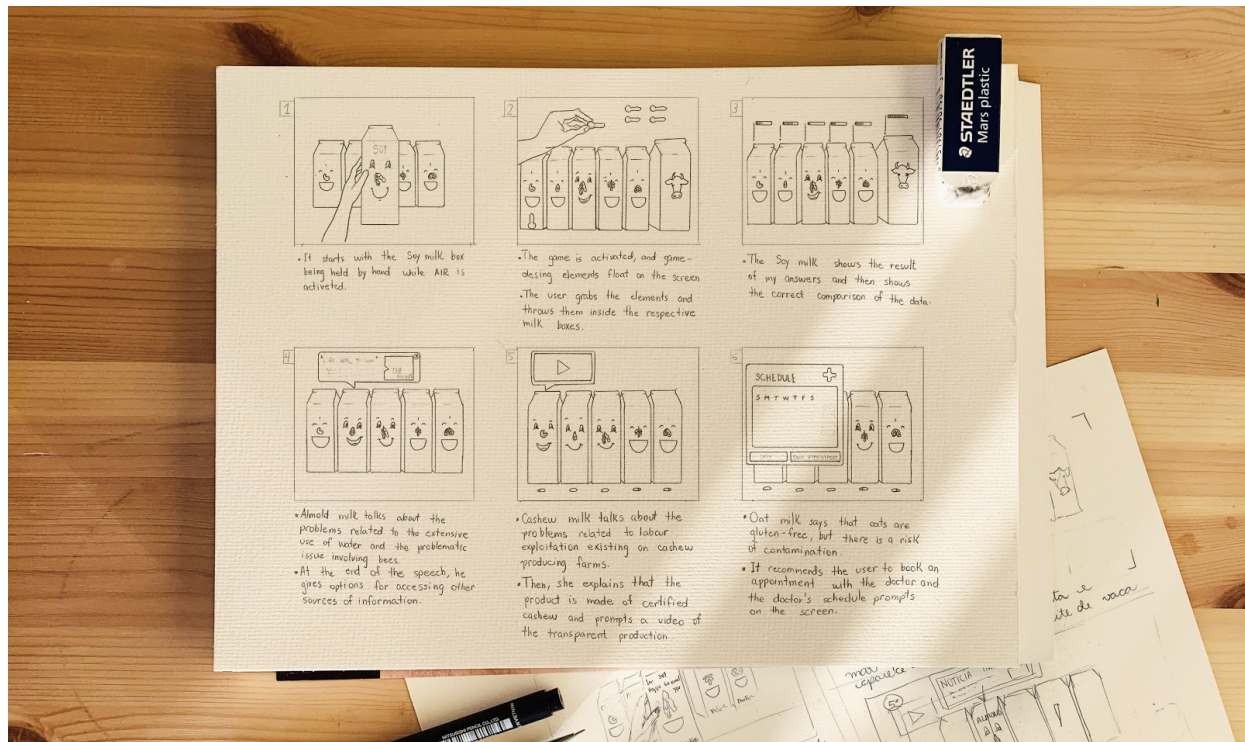 1
SOY
• It starts with the Soy milk box
being held by hand while AIR is
activeted.
2
• The game is activated, and game-
desing elements float on the screen
• The user grabs the elements and
throws them inside the respective
milk boxes.
3
• The Soy milk shows the result
of my answers and then shows
the correct comparison of the data.
4
• Almold milk talks about the
problems related to the extensive
use of water and the problematic
issue involving bees.
• At the end of the speech, he
gives options for accessing other
sources of information.
5
• Cashew milk talks about the
problems related to labour
exploitation existing on cashew
producing farms.
• Then, she explains that the
product is made of certified
cashew and prompts a video of
the transparent production.
6
SCHEDULE
S M T W T F S
• Oat milk says that oats are
gluten-free, but there is a risk
of contamination.
• It recommends the user to book an
appointment with the doctor and
the doctor's schedule prompts
on the screen.
STAEDTLER
Mars plastic
ta e
ite de vaca
MITSUBISHI PENCIL CO. LTD
5º
NOTICIA